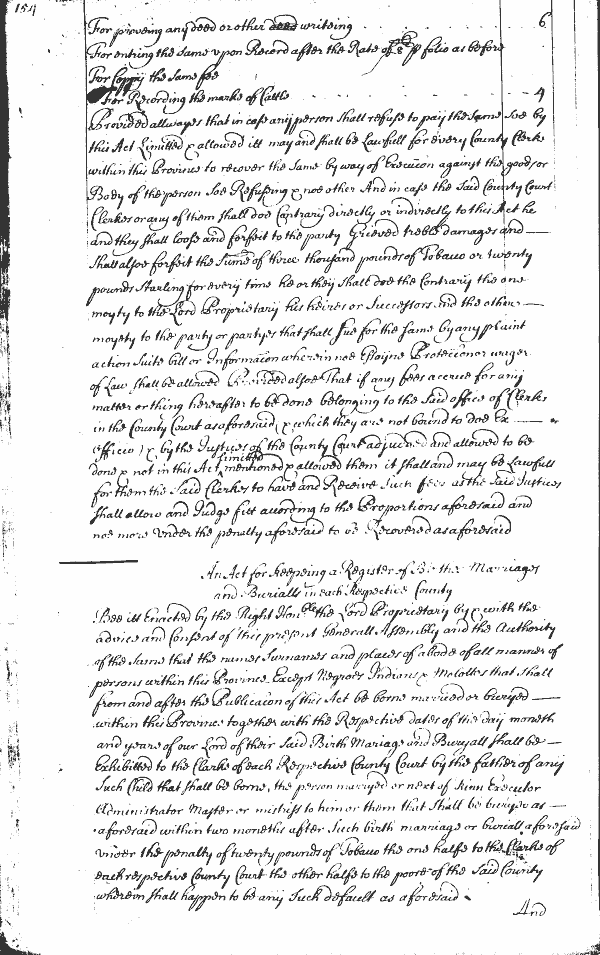 154
For proveing any deed or other deed writeing 6
For entring the same vpon Record after the Rate of 8 p folio as before
For Coppy the same fee
For Recording the marke of Cattle 4
Provided allwayes that in case any person shall refuse to pay the same soe by
this Act Limitted & allowed itt may and shall be Lawfull for every County Clerke
within this Province to recover the same by way of Execucon against the goods or
Body of the person soe Refusing & noe other And in case the said County Court
Clerkes or any of them shall doe Contrary directly or indirectly to this Act he
and they shall loose and forfeit to the party Grieved treble damages and
shall alsoe forfeit the Sume of three thousand pounds of Tobaco or twenty
pounds Starling for every time he or they shall doe the Contrary the one
moyty to the Lord Proprietary his heires or Successors and the other
moyety to the party or partyes that shall sue for the same by any plaint
action Suite bill or Informacon wherein noe Essoijne Proteccion or wager
of Law shall be allowed Provided alsoe That if any fees accrue for any
matter or thing hereafter to be done belonging to the said office of Clerks
in the County Court as aforesaid, & which they are not bound to doe Ex
Officio) & by the Justices of the County Court adjudged and allowed to be
Limitted
done & not in this Act mentioned & allowed them it shall and may be Lawfull
for them the said Clerkes to have and Receive such fees as the said Justices
shall allow and Judge fitt according to the Proportions aforesaid and
noe more vnder the penalty aforesaid to be Recovered as aforesaid
An Act for Keepeing a Register of Births Marriages
and Burialls in each Respective County
Bee itt Enacted by the Right Honble the Lord Proprietary by & with the
advice and Consent of this present Generall Assembly and the Authority
of the same that the names Surnames and places of abode of all manner of
persons within this Province Except Negroes Indians & Molottos that shall
from and after the Publicacon of this Act be borne married or buryed
within this Province together with the Respective dates of the day moneth
and yeares of our Lord of their said Birth Mariage and Buryall shall be
Exhibitted to the Clarke of each Respective County Court by the father of any
such Child that shall be borne, the person marryed or next of Kinn Executor
Administrator Master or mistriss to him or them that shall be buryed as
aforesaid within two moneths after such birth marriage or buriall aforesaid
vnder the penalty of twenty pounds of Tobaco the one halfe to the Clarke of
each respective County Court the other halfe to the poore of the said County
wherein shall happen to be any such default as aforesaid
And